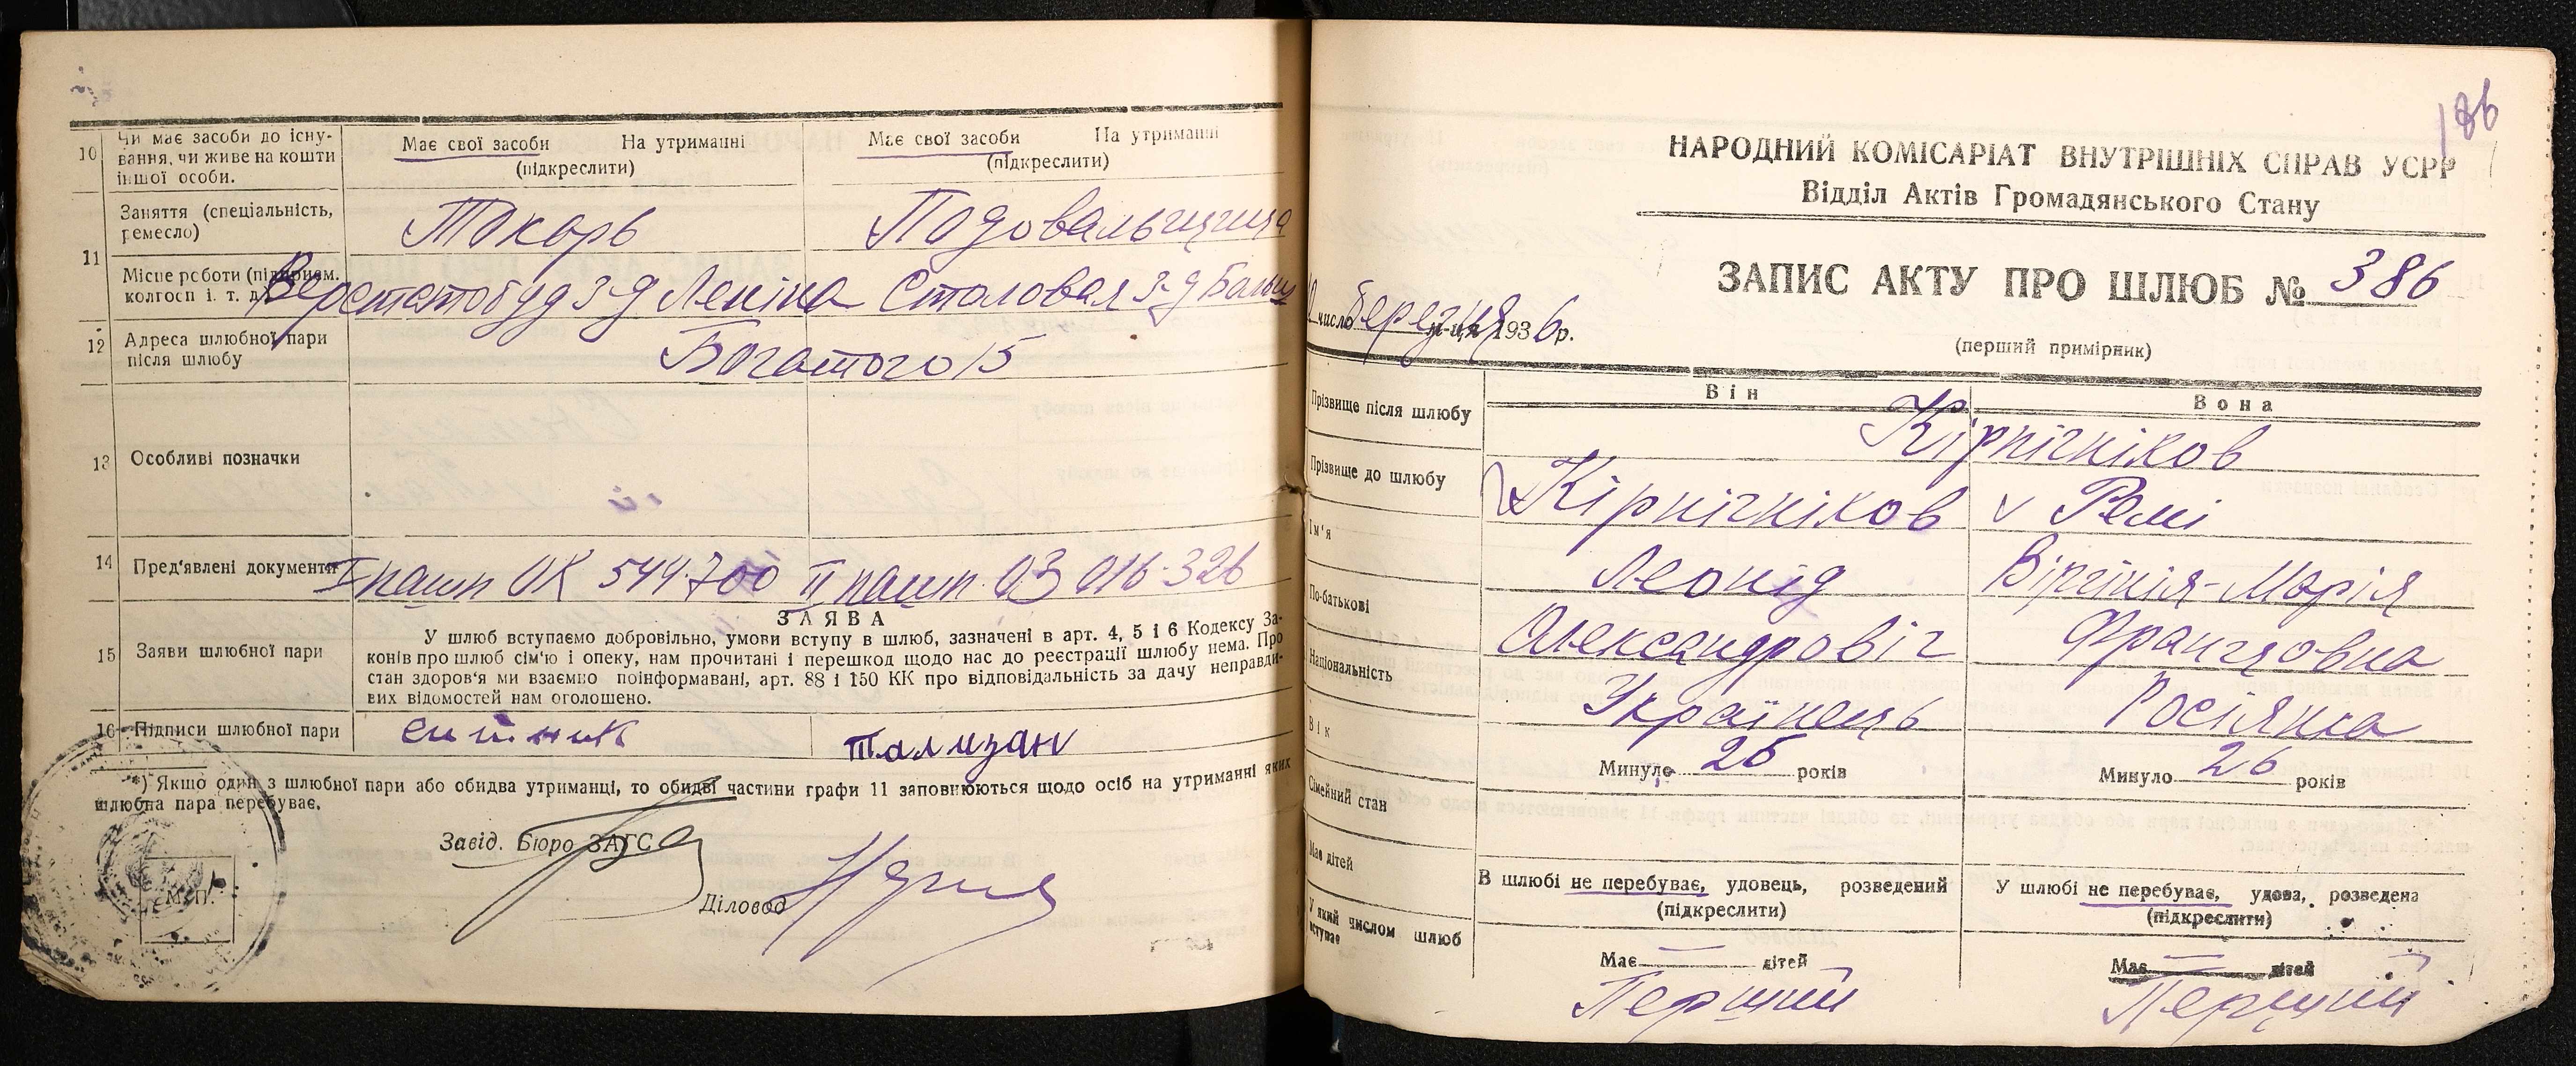 10 Чи має засоби до існу-
вання, чи живе на кошти
іншої особи.
Має свої засоби На утриманні
(підкреслити)
Має свої засоби На утриманні
(підкреслити)
11 Заняття (спеціальність,
ремесло)
Токорь
Подовальщица
Місце роботи (підприєм.
колгосп і. т. д.)
Верстатобуд з-д Леніна Столовая з-д
12 Адреса шлюбної пари
після шлюбу
Богатого 15
13 Особливі позначки
14 Пред'явлені документи
I пашп ОК 544.700 II пашп. ОЗ 016.326
15 Заяви шлюбної пари
ЗАЯВА
У шлюб вступаємо добровільно, умови вступу в шлюб, зазначені в арт. 4, 5 і 6 Кодексу За-
конів про шлюб сім'ю і опеку, нам прочитані і перешкод щодо нас до реєстрації шлюбу нема. Про
стан здоров'я ми взаємно поінформавані, арт. 88 і 150 КК про відповідальність за дачу неправди-
вих відомостей нам оголошено.
16 Підписи шлюбної пари
Талызан
*) Якщо один з шлюбної пари або обидва утриманці, то обидві частини графи 11 заповнюються щодо осіб на утриманні яких
шлюбна пара перебуває.
Завід. Бюро ЗАГС
Діловод
М. П.
186
НАРОДНИЙ КОМІСАРІАТ ВНУТРІШНІХ СПРАВ УСРР
Відділ Актів Громадянського Стану
ЗАПИС АКТУ ПРО ШЛЮБ № 386
число березня м-ця 1936 р.
(перший примірник)
Він
Вона
Прізвище після шлюбу
Кірпічніков
Прізвище до шлюбу
Кірпічніков
v Ремі
Ім'я
Леонід
Віргінія-Марія
По-батькові
Олександровіч
Францовна
Національність
Українець
Росіянка
Вік
Минуло 26 років
Минуло 26 років
Сімейний стан
В шлюбі не перебуває, удовець, розведений
(підкреслити)
У шлюбі не перебуває, удова, розведена
(підкреслити)
Має дітей
Має — дітей
Має — дітей
У який числом шлюб
вступає
Перший
Перший